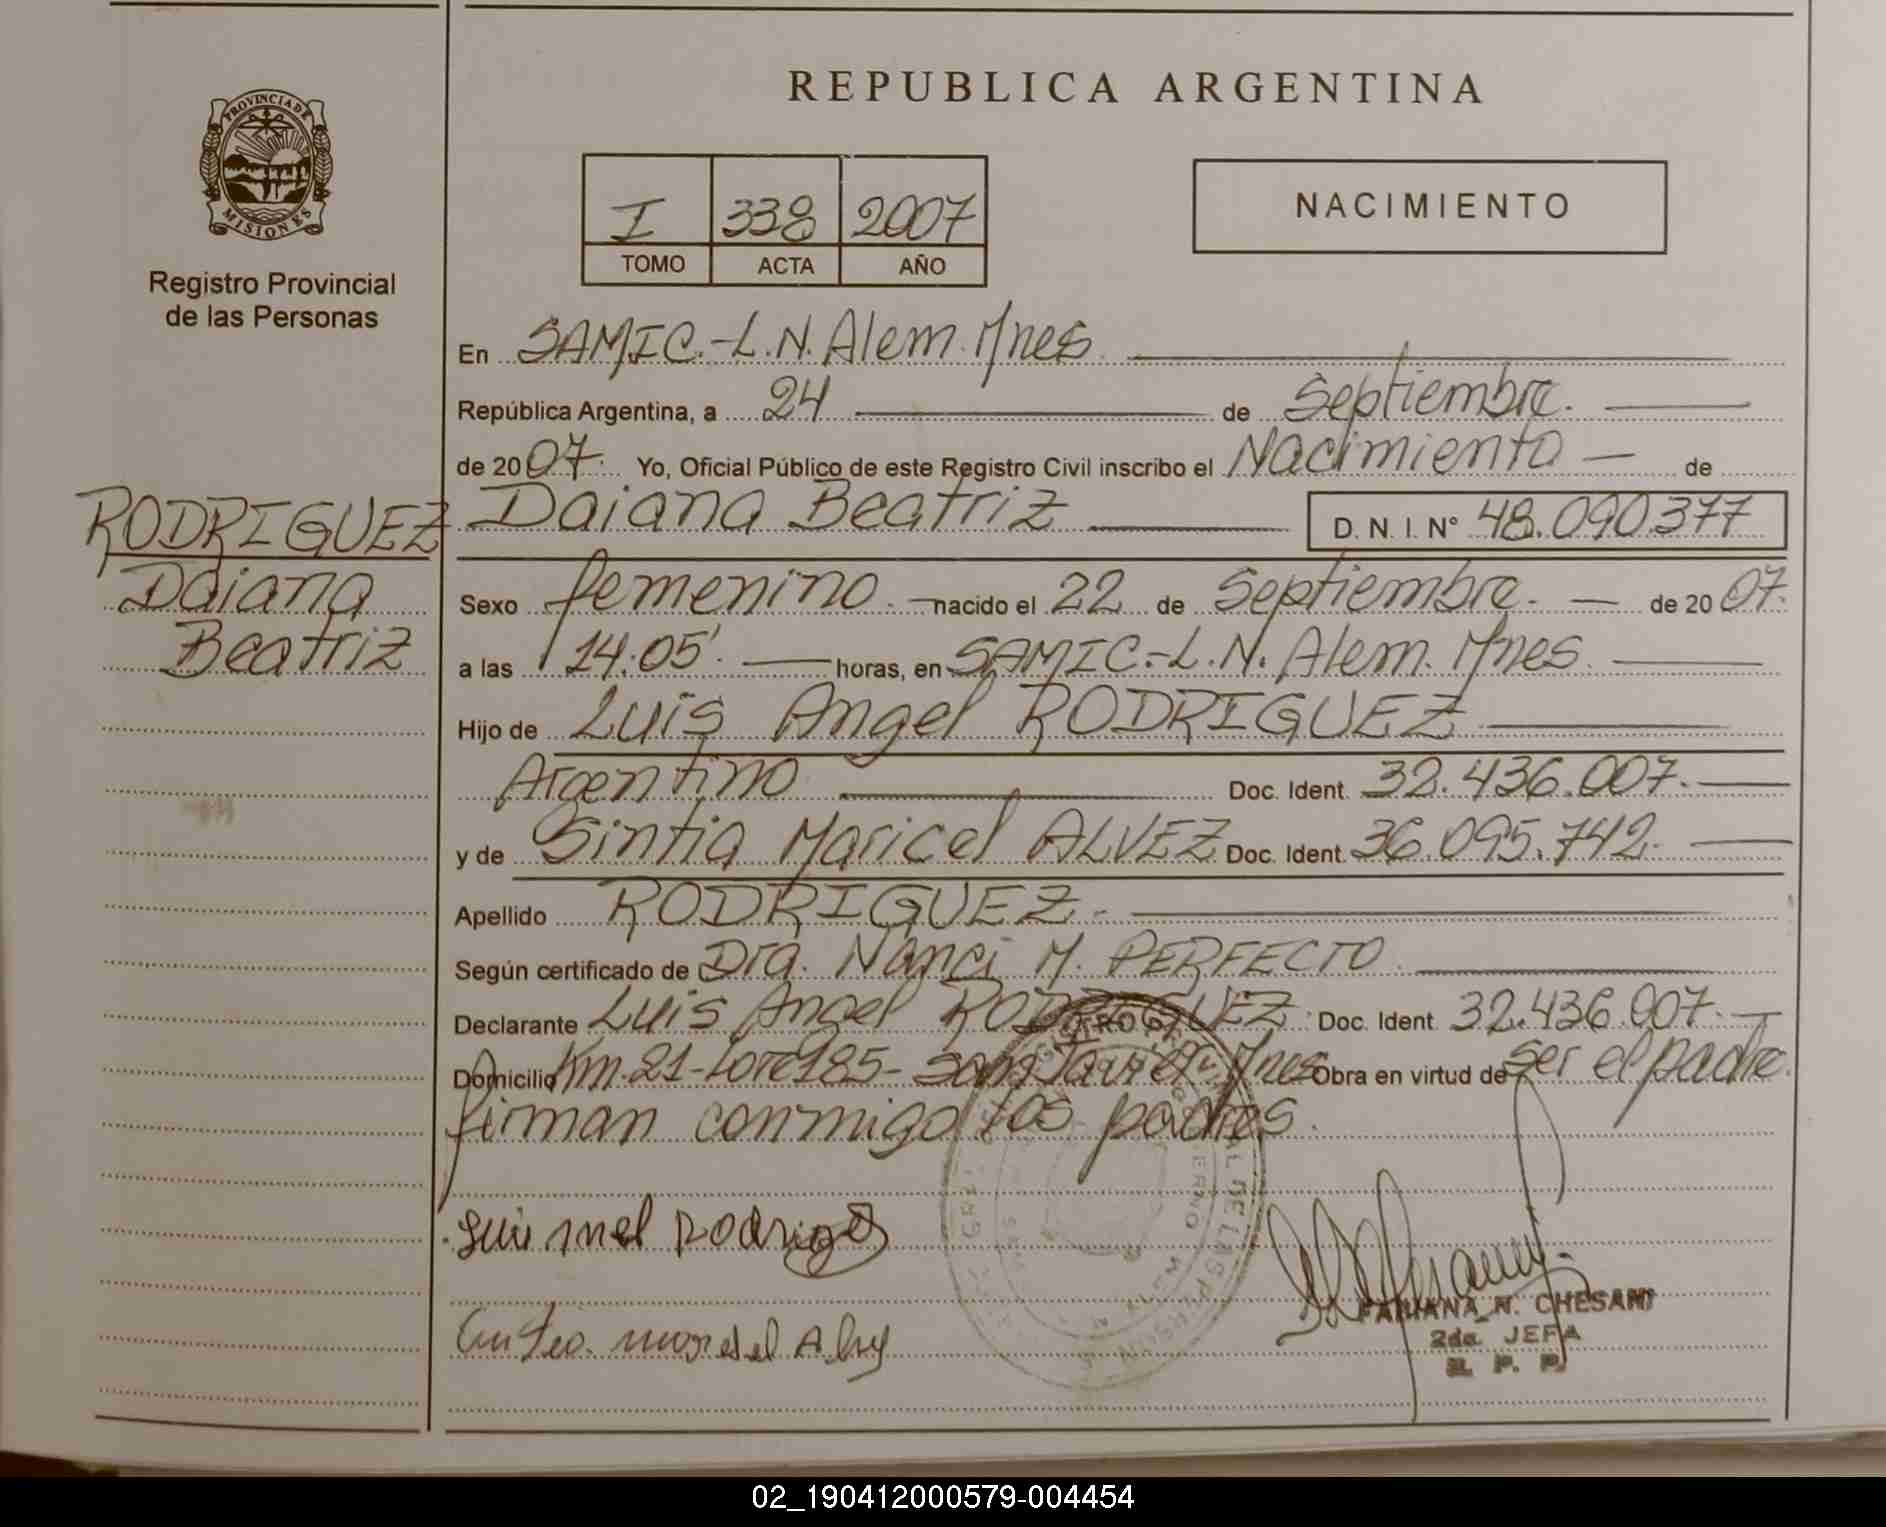 REPUBLICA ARGENTINA
PROVINCIA DE
MISIONES
Registro Provincial
de las Personas
I 338 2007
TOMO ACTA AÑO
NACIMIENTO
En SAMIC.-L.N.Alem.Mnes
República Argentina, a 24 de Septiembre.
de 20 07. Yo, Oficial Público de este Registro Civil inscribo el Nacimiento de
RODRIGUEZ
Daiana
Beatriz
Daiana Beatriz D. N. I. N° 48.090.377
Sexo femenino. nacido el 22 de Septiembre. de 20 07.
a las 14:05'. horas, en SAMIC.-L.N. Alem. Mnes.
Hijo de Luis Angel RODRIGUEZ
Argentino Doc. Ident. 32.436.007.
y de Sintia Maricel ALVEZ Doc. Ident. 36.095.742.
Apellido RODRIGUEZ.
Según certificado de Dra. Nanci M. PERFECTO.
Declarante Luis Angel RODRIGUEZ Doc. Ident. 32.436.007.
Domicilio Km 21-Lote 185- San Javier. Mnes Obra en virtud de ser el padre.
firman conmigo los padres.
FABIANA N. CHESANI
2da. JEFA
R. P. P.
02_190412000579-004454